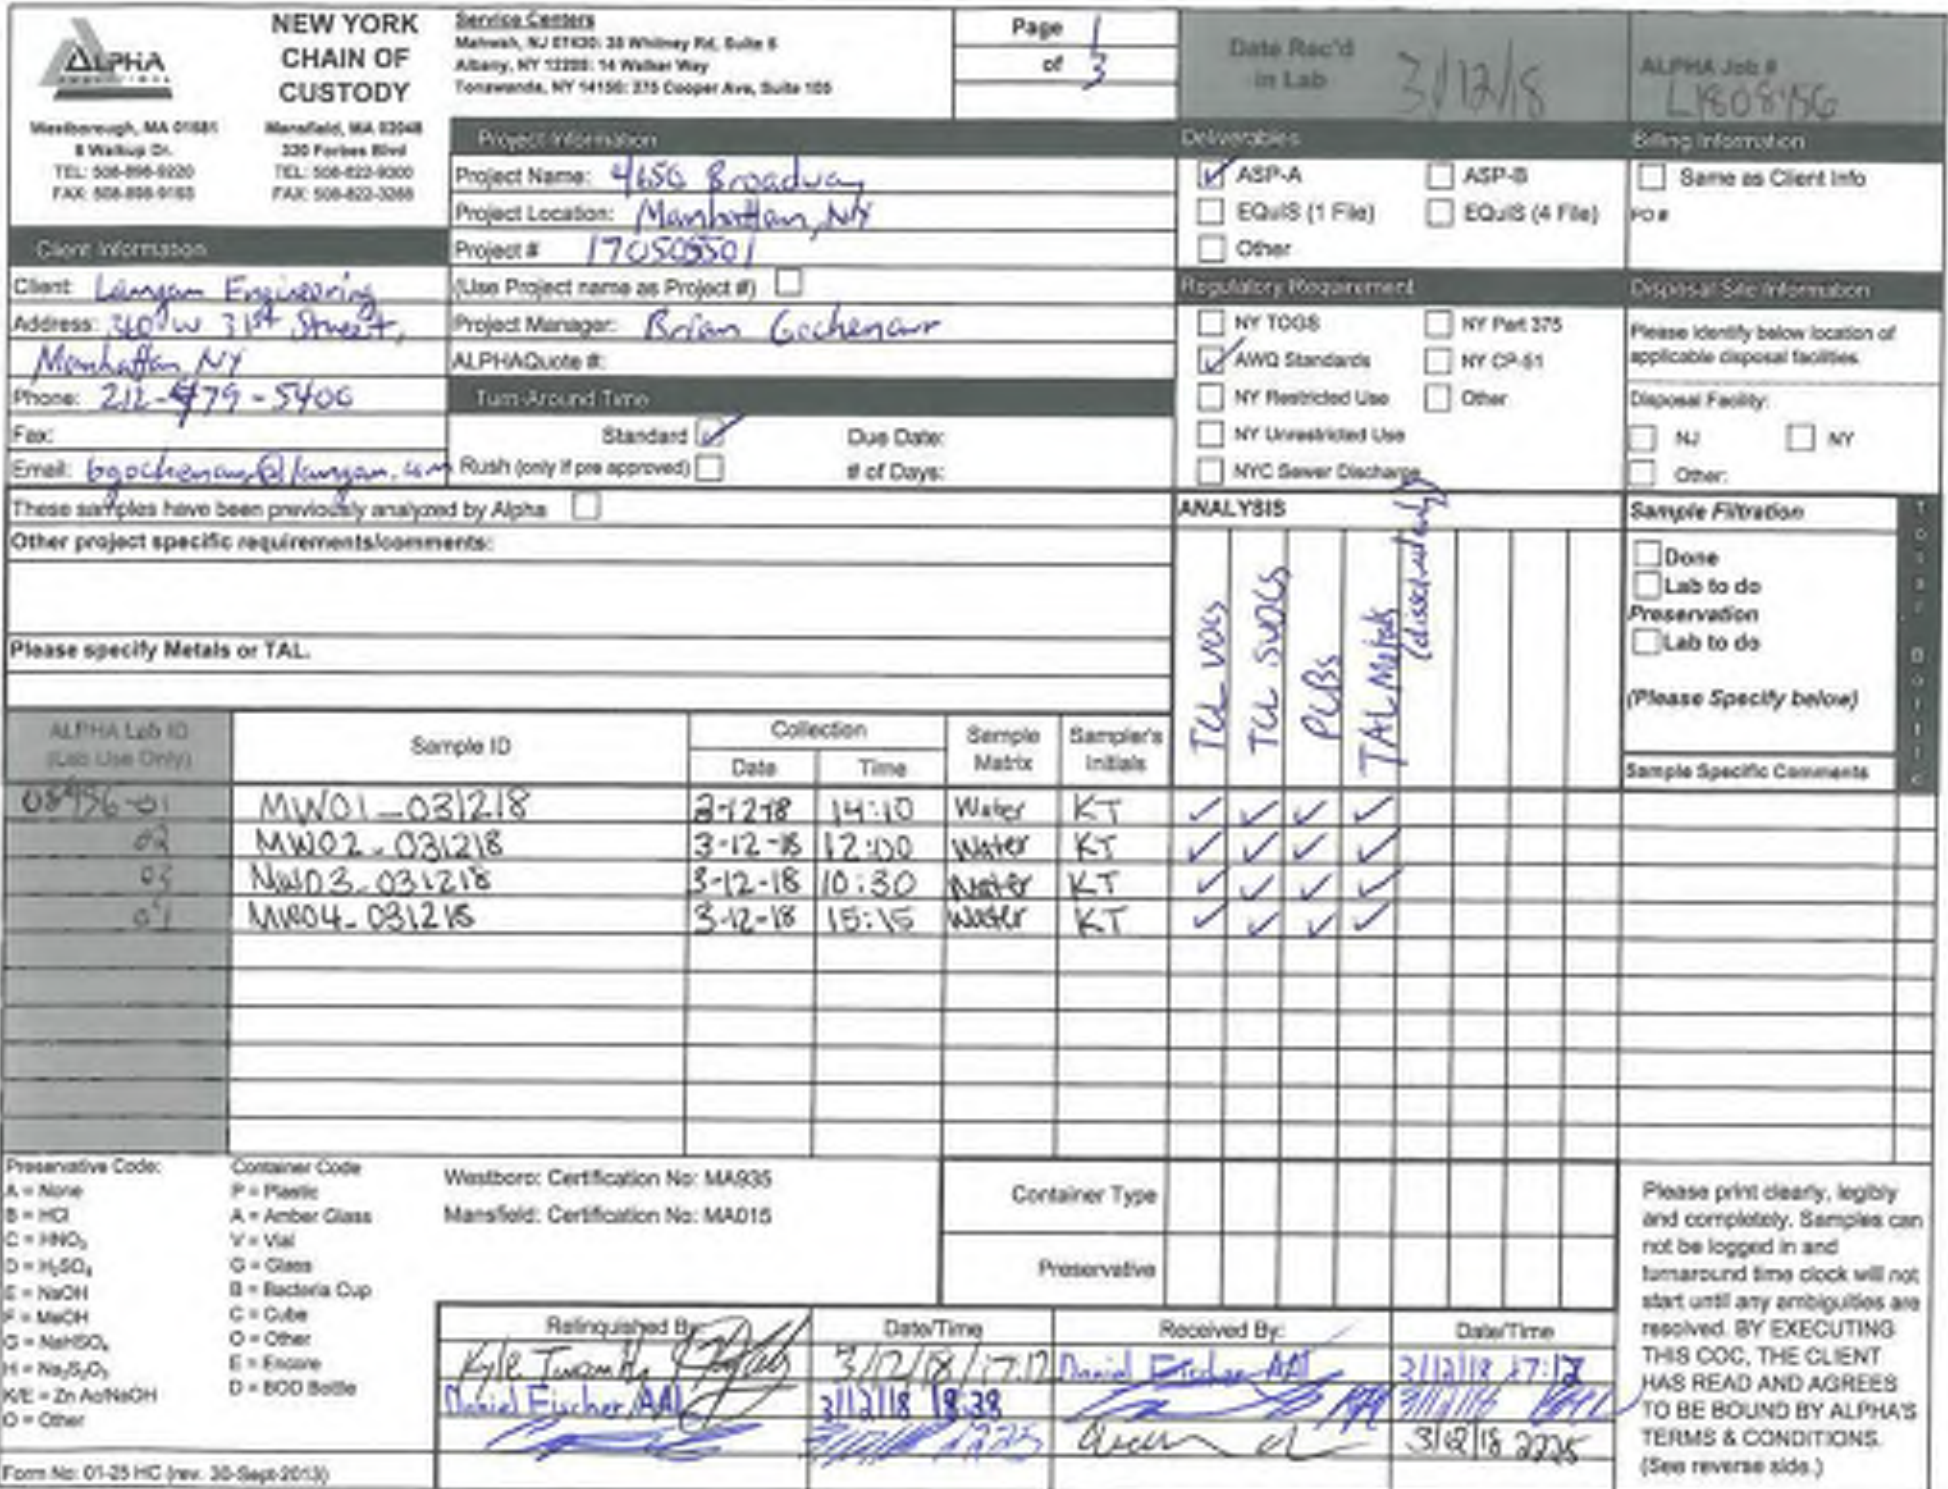 ALPHA
NEW YORK
CHAIN OF
CUSTODY
Westborough, MA 01581
8 Walkup Dr.
TEL: 508-898-9220
FAX: 508-898-9193
Mansfield, MA 02048
320 Forbes Blvd
TEL: 508-822-9300
FAX: 508-822-3288
Service Centers
Mahwah, NJ 07430: 35 Whitney Rd, Suite 5
Albany, NY 12205: 14 Walker Way
Tonawanda, NY 14150: 275 Cooper Ave, Suite 105
Page 1
of 3
Date Rec'd
in Lab 3/12/18
ALPHA Job #
Project Information
Project Name: 4650 Broadway
Project Location: Manhattan, NY
Project # 170505501
(Use Project name as Project #)
Project Manager: Brian Gochenaur
ALPHAQuote #:
Turn-Around Time
Standard
Due Date:
Rush (only if pre approved)
# of Days:
Client Information
Client: Langan Engineering
Address: 360 W 31st Street,
Manhattan NY
Phone: 212-479-5400
Fax:
Email: bgochenaur@langan.com
Deliverables
ASP-A
ASP-B
EQuIS (1 File)
EQuIS (4 File)
Other
Regulatory Requirement
NY TOGS
NY Part 375
AWQ Standards
NY CP-51
NY Restricted Use
Other
NY Unrestricted Use
NYC Sewer Discharge
Billing Information
Same as Client Info
PO #
Disposal Site Information
Please identify below location of
applicable disposal facilities.
Disposal Facility:
NJ
NY
Other:
These samples have been previously analyzed by Alpha
Other project specific requirements/comments:
Please specify Metals or TAL.
ANALYSIS
TCL VOCs
TCL SVOCs
PCBs
TAL Metals
Sample Filtration
Done
Lab to do
Preservation
Lab to do
(Please Specify below)
Sample Specific Comments
ALPHA Lab ID
(Lab Use Only)
Sample ID
Collection
Date
Time
Sample
Matrix
Sampler's
Initials
MW01_031218 3-12-18 14:10 Water KT ✓ ✓ ✓ ✓
02 MW02_031218 3-12-18 12:00 Water KT ✓ ✓ ✓ ✓
03 MW03_031218 3-12-18 10:30 Water KT ✓ ✓ ✓ ✓
04 MW04_031218 3-12-18 15:15 Water KT ✓ ✓ ✓ ✓
Preservative Code:
A = None
B = HCl
C = HNO₃
D = H₂SO₄
E = NaOH
F = MeOH
G = NaHSO₄
H = Na₂S₂O₃
K/E = Zn Ac/NaOH
O = Other
Container Code
P = Plastic
A = Amber Glass
V = Vial
G = Glass
B = Bacteria Cup
C = Cube
O = Other
E = Encore
D = BOD Bottle
Westboro: Certification No: MA935
Mansfield: Certification No: MA015
Container Type
Preservative
Relinquished By:
Date/Time
Received By:
Date/Time
Kyle 3/12/18/17:12 Daniel Fischer AAL 3/12/18 17:12
Daniel Fischer AAL 3/12/18 18:28
3/12/18 2225
Please print clearly, legibly
and completely. Samples can
not be logged in and
turnaround time clock will not
start until any ambiguities are
resolved. BY EXECUTING
THIS COC, THE CLIENT
HAS READ AND AGREES
TO BE BOUND BY ALPHA'S
TERMS & CONDITIONS.
(See reverse side.)
Form No: 01-25 HC (rev. 30-Sept-2013)